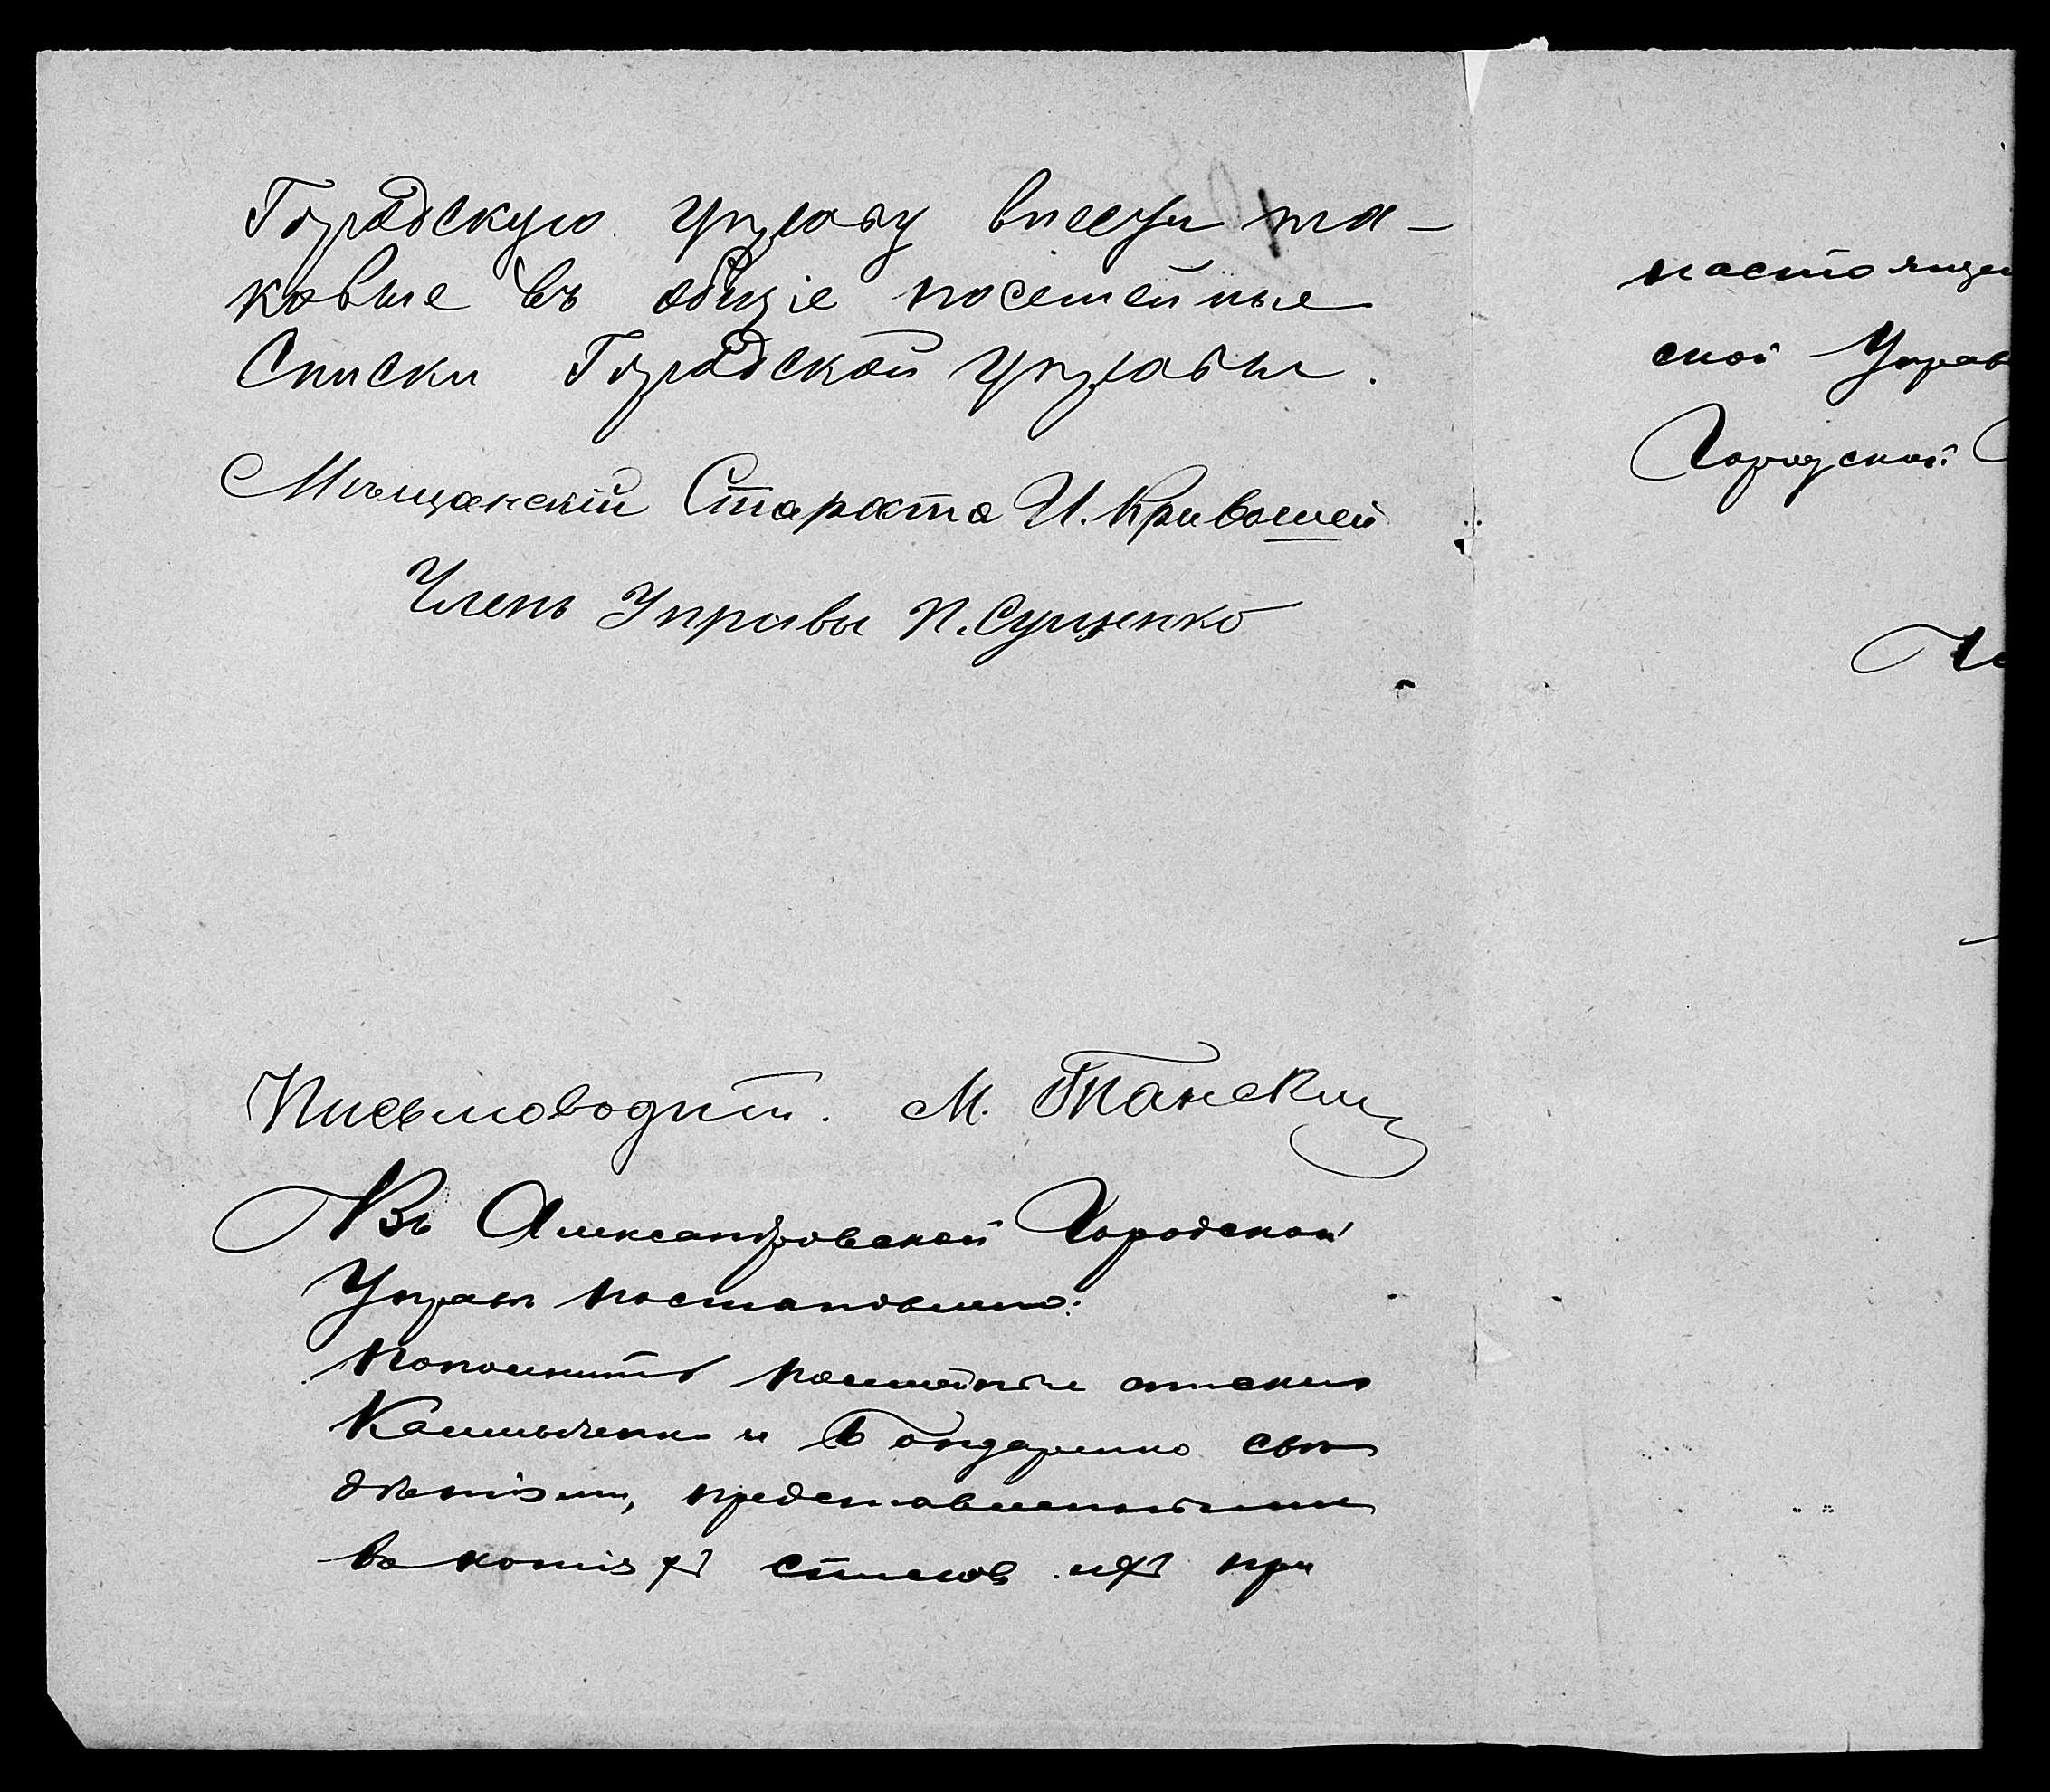 Городскую управу внести та-
ковые въ общіе посемейные
Списки Городской управы.
Мѣщанскій Староста И. Кривошей
Членъ Управы П. Сущенко
Письмоводит. М. Танский
Въ Александровской Городской
Управѣ постановлено:
пополнить посемейные списки
и Бондаренко свѣ
дѣніями, представленными
въ копіяхъ списковъ ихъ при
настоящем
ской Управ
Городской